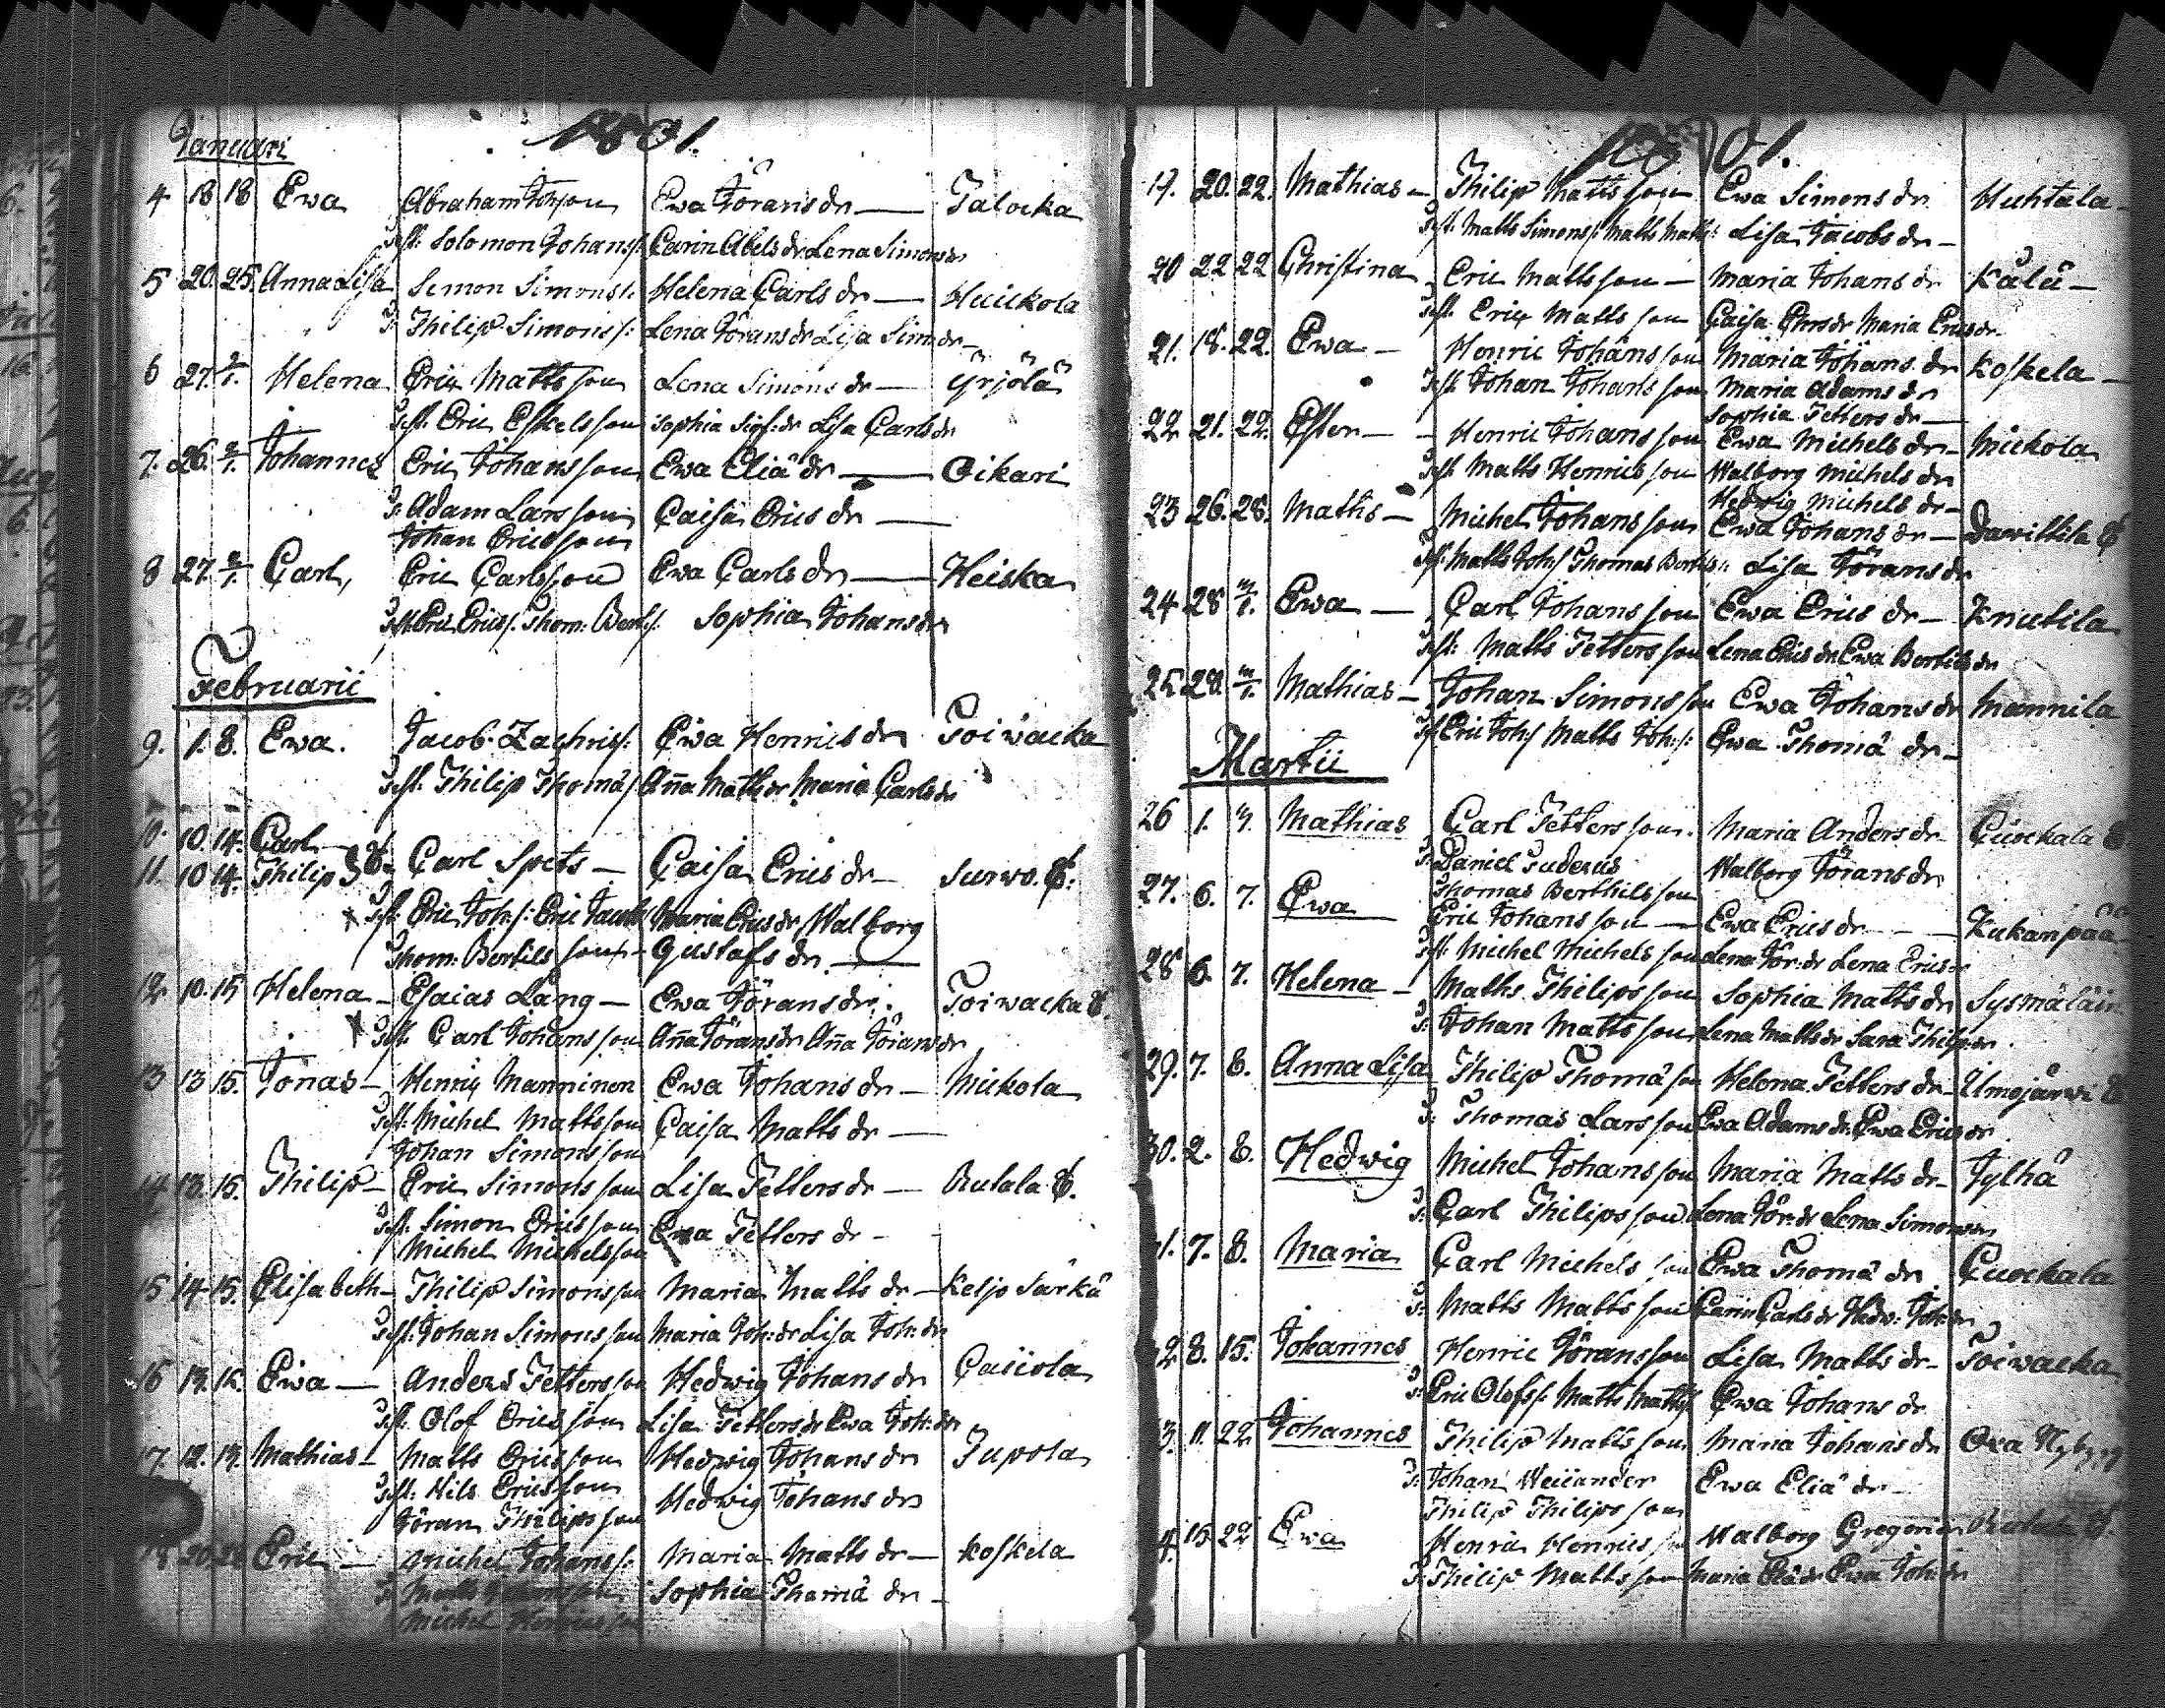 Januari
1801.
4 18 18 Ewa Abraham Joh:son Ewa Jörans dr — Palocka
Test: Solomon Johans s: Carin Abels dr Lena Simons dr
5 20. 25. Anna Lisa Semon Simons s: Helena Carls dr — Huickola
T: Philip Simons s: Lena Jörans dr Lisa Sim: dr —
6 27. 2/1. Helena Eric Matts son Lena Simons dr — Yrjölä
Test: Eric Eskels son Sophia Sigf: dr Lisa Carls dr
7. 26. 2/1. Johannes Eric Johans son Ewa Eliä dr — Oikari
T: Adam Lars son Caisa Erics dr —
Johan Ericsson
8 27. 2/1. Carl, Eric Carlsson Ewa Carls dr — Heiska
Test: Eric Erics s. Thom: Bert: s: Sophia Johans dr
Februarii
9. 1. 8. Ewa. Jacob Zachris s: Ewa Henrics dr Toiwacka
Test: Philip Thomä s Anna Matts dr Maria Carls dr
10. 10. 14. Carl
11. 10 14. Philip Carl Spets — Caisa Erics dr — Surwo.
Test: Eric Joh: s: Eric Jacob Maria Erics dr Walborg
Thom: Bertils son — Gustafs dr. —
12 10. 15 Helena — Esaias Lång — Ewa Jörans dr. Toiwacka
Test: Carl Johans son Anna Jörans dr Anna Jörans dr
13 13 15. Jonas — Henric Manninen Ewa Johans dr — Mickola
Test: Michel Mattsson Caisa Matts dr —
Johan Simonsson
14 13. 15. Philip — Eric Simons son Lisa Petters dr — Rutala
Test: Simon Ericsson Ewa Petters dr —
Michel Michelsson
15 14. 15. Elisabeth — Philip Simonsson Maria Matts dr — Keljo Särkä
Test: Johan Simons son Maria Joh: dr Lisa Joh: dr
16 14. 15. Ewa — Anders Pettersson Hedwig Johans dr
Test: Olof Erics son Lisa Petters dr Ewa Joh: dr
17. 12. 14. Mathias — Matts Ericsson Hedwig Johans dr Pupola
Test: Nils Ericsson Hedwig Johans dr
Jöran Philipsson
18 20. 22 Eric — Michel Johans s: Maria Matts dr — Koskela
T: Matts Sophia Thomä dr —
Michel Henricsson
1801.
19. 20. 22. Mathias — Philip Mattsson Ewa Simons dr Huhtala —
Test: Matts Simons s: Matts Matts: Lisa Jacobs dr —
20 22 22 Christina Eric Matts son — Maria Johans dr Kälä —
Test: Eric Matts son Caisa Erics dr Maria Erics dr
21. 18. 22. Ewa — Henric Johans son Maria Johans dr Koskela —
Test: Johan Johans son Maria Adams dr
Sophia Petters dr —
22 21. 22. Ester — Henric Johans son Ewa Michels dr — Mickola
Test: Matts Henrics son Walborg Michels dr
Hedwig Michels dr —
23 26. 28. Matts — Michel Johans son Ewa Johans dr — Dawittila
Test: Matts Joh: s Thomas Bertils s: Lisa Jörans dr
24 28 m/1. Ewa — Carl Johans son Ewa Erics dr — Knutila
Test: Matts Petters son Lena Erics dr Ewa Bertils dr
25 28. m/1. Mathias — Johan Simons son Ewa Johans dr Mannila
Test: Eric Joh: s Matts Joh: s: Ewa Thomä dr —
Martii
26 1. 4. Mathias Carl Petters son. Maria Anders dr Cuockala
T: Daniel Puderus Walborg Jörans dr
Thomas Berthils son
27. 6. 7. Ewa Eric Johans son — Ewa Erics dr — Kukanpää
Test: Michel Michels son Lena Jör: dr Lena Erics dr
28 6. 7. Helena — Matts Philips son Sophia Matts dr Sysmäläin
T: Johan Matts son Lena Matts dr Sara Philips dr.
29. 7. 8. Anna Lisa Philip Thomä son Helena Petters dr — Älmojärwi
T: Thomas Lars son Ewa Adams dr Ewa Erics dr.
30. 2. 8. Hedwig Michel Johans son Maria Matts dr — Pylhä
T: Carl Philips son Lena Jör: dr Lena Simons dr
31. 7. 8. Maria Carl Michels son Ewa Thomä dr Cuockala
T: Matts Matts son Carin Carls dr Hedw: Joh: dr
32 8. 15. Johannes Henric Jörans son Lisa Matts dr — Toiwacka
T: Eric Olofs s: Matts Matts s Ewa Johans dr
33. 11. 22 Johannes Philip Matts son Maria Johans dr Oxa Nybygg
T: Johan Weilander Ewa Eliä dr —
Philip Philips son
34. 15. 22 Ewa Henric Henrics son Walborg Gregorii dr
T: Philip Matts son Maria Eliä dr Ewa Joh: dr